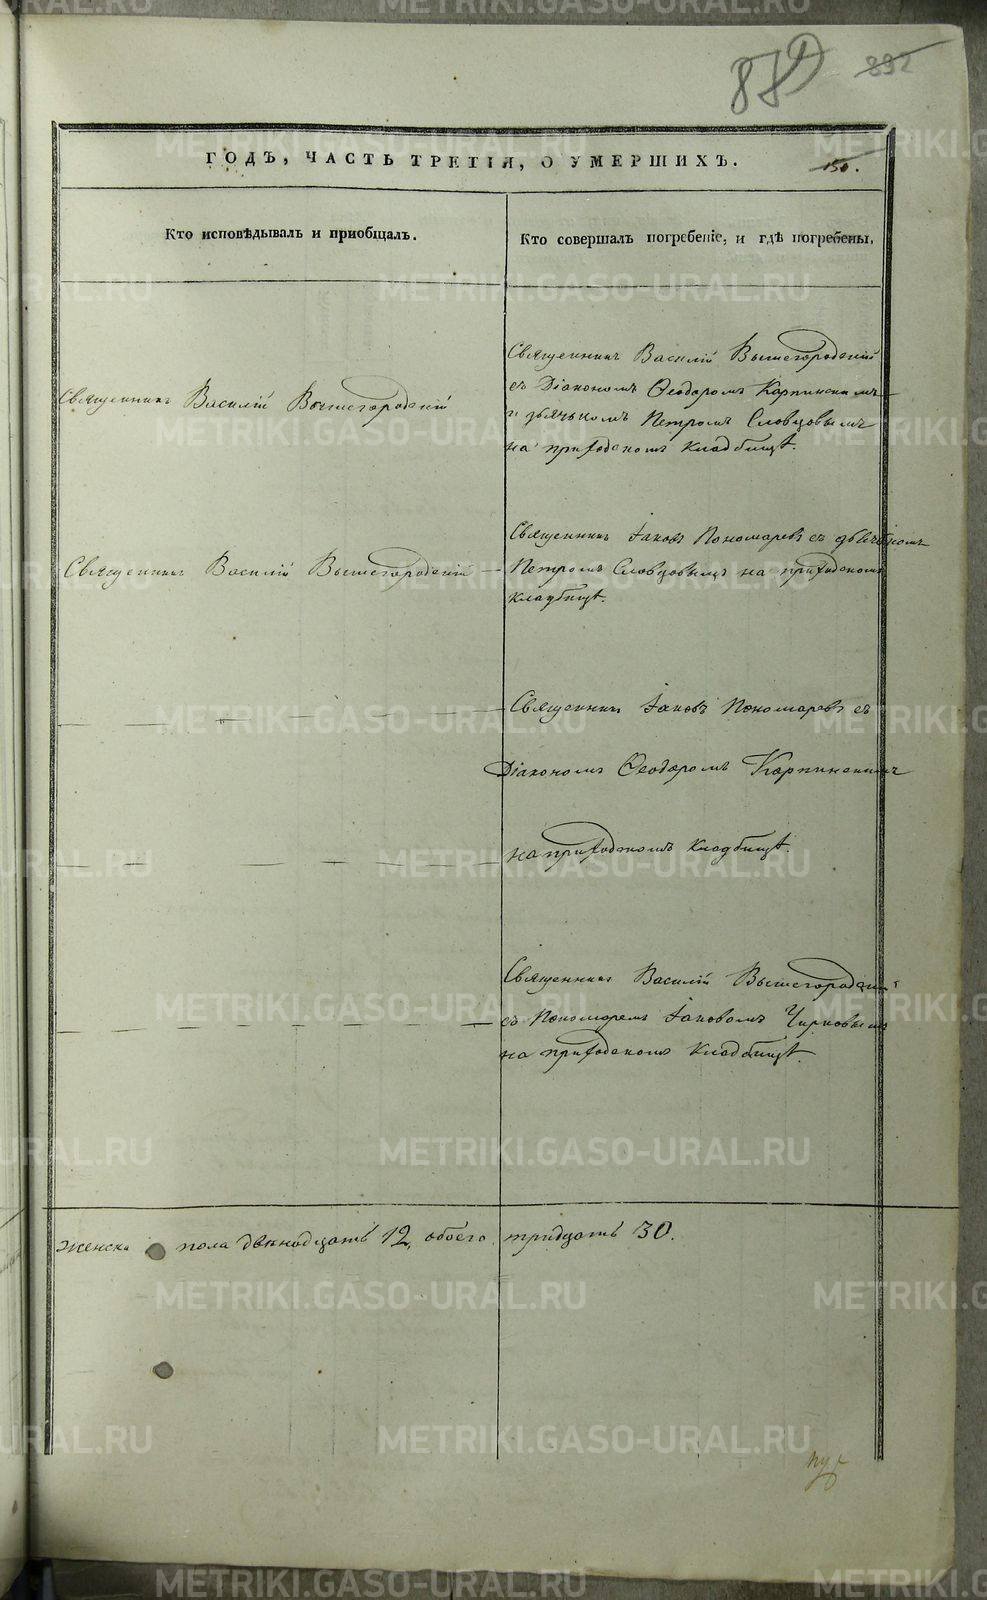 881
892
ГОДЪ, ЧАСТЬ ТРЕТІЯ, О УМЕРШИХЪ.
150.
Кто исповѣдывалъ и приобщалъ.
Кто совершалъ погребеніе, и гдѣ погребены.
Священникъ Василій Вышегородскій
Священникъ Василій Вышегородскій
съ Діакономъ Ѳеодоромъ Карпинскимъ
и дьячькомъ Петромъ Словцовымъ
на приходскомъ кладбищѣ.
Священникъ Василій Вышегородскій
Священникъ Іаковъ Пономаревъ съ дьячькомъ
Петромъ Словцовымъ на приходскомъ
кладбищѣ.
Священникъ Іаковъ Пономаревъ съ
Діакономъ Ѳеодоромъ Карпинскимъ
на приходскомъ кладбищѣ.
Священникъ Василій Вышегородскій
съ Пономаремъ Іаковомъ Чирковымъ
на приходскомъ кладбищѣ.
женска пола двѣнадцать 12, обоего тридцать 30.
METRIKI.GASO-URAL.RU